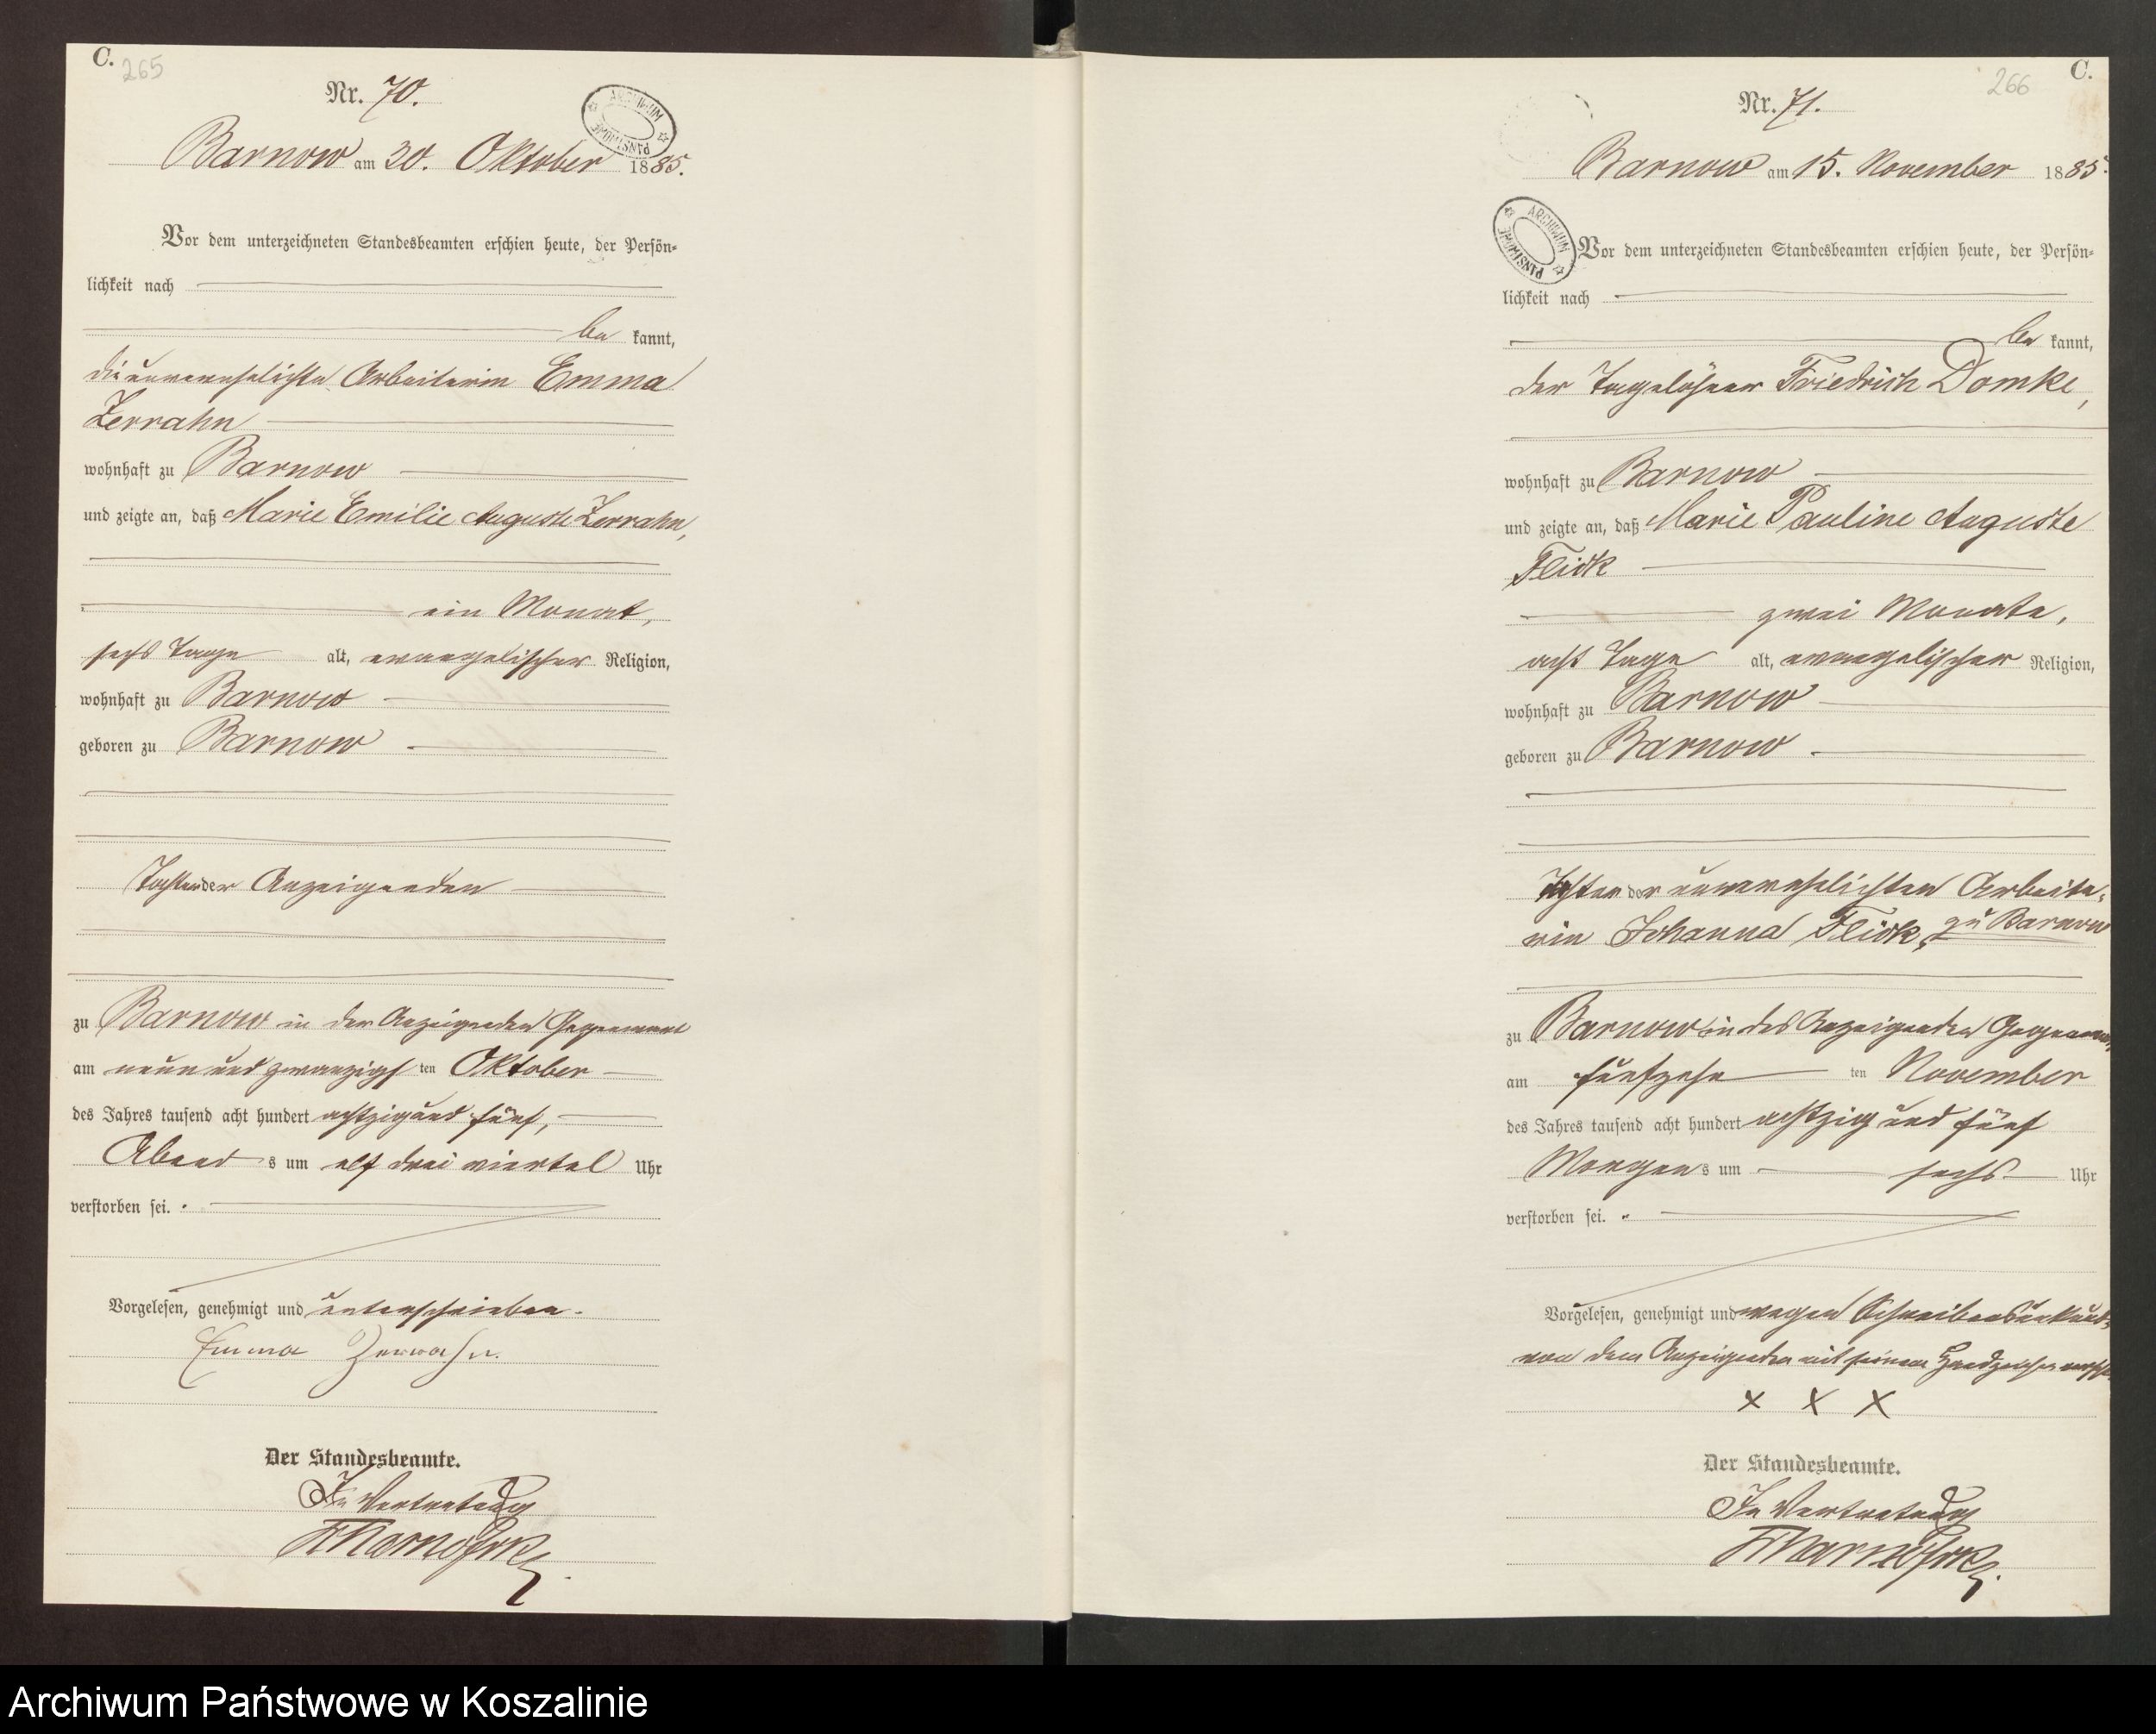 C.
265
Nr. 70.
ARCHIWUM PAŃSTWOWE
Barnow am 30. Oktober 1885.
Vor dem unterzeichneten Standesbeamten erschien heute, der Persön-
lichkeit nach
be kannt,
die unverehelichte Arbeiterin Emma
Zerrahn
wohnhaft zu Barnow
und zeigte an, daß Marie Emilie Auguste Zerrahn,
ein Monat,
sechs Tage alt, evangelischer Religion,
wohnhaft zu Barnow
geboren zu Barnow
Tochter der Anzeigenden
zu Barnow in der Anzeigenden Gegenwart
am neun und zwanzigs ten Oktober
des Jahres tausend acht hundert achtzig und fünf,
Abend s um elf drei viertel Uhr
verstorben sei.
Vorgelesen, genehmigt und unterschrieben.
Emma Zerrahn.
Der Standesbeamte.
In Vertretung
C.
266
Nr. 71.
Barnow am 15. November 1885.
ARCHIWUM PAŃSTWOWE
Vor dem unterzeichneten Standesbeamten erschien heute, der Persön-
lichkeit nach
be kannt,
der Tagelöhner Friedrich Domke,
wohnhaft zu Barnow
und zeigte an, daß Marie Pauline Auguste
Flick
zwei Monate,
acht Tage alt, evangelischer Religion,
wohnhaft zu Barnow
geboren zu Barnow.
Tochter der unverehelichten Arbeite-
rin Johanna Flick, zu Barnow
zu Barnow in des Anzeigenden Gegenwart
am fünfzehn ten November
des Jahres tausend acht hundert achtzig und fünf
Morgen s um sechs Uhr
verstorben sei.
Vorgelesen, genehmigt und wegen Schreibensunkund.
von dem Anzeigenden mit seinem Handzeichen versehen
x x x
Der Standesbeamte.
In Vertretung
Archiwum Państwowe w Koszalinie